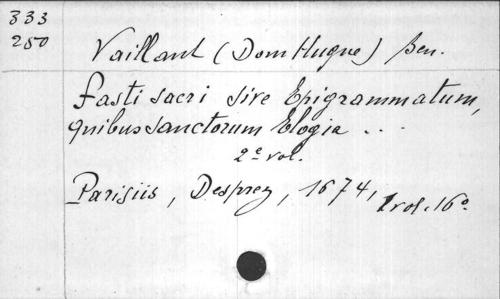 333
250
Vaillant (Dom Hugue) Ben.
Fasti sacri sive Epigrammatum,
quibus sanctorum Elogia ...
2e vol.
Parisiis, Desprez, 1674, 1 vol. 16o